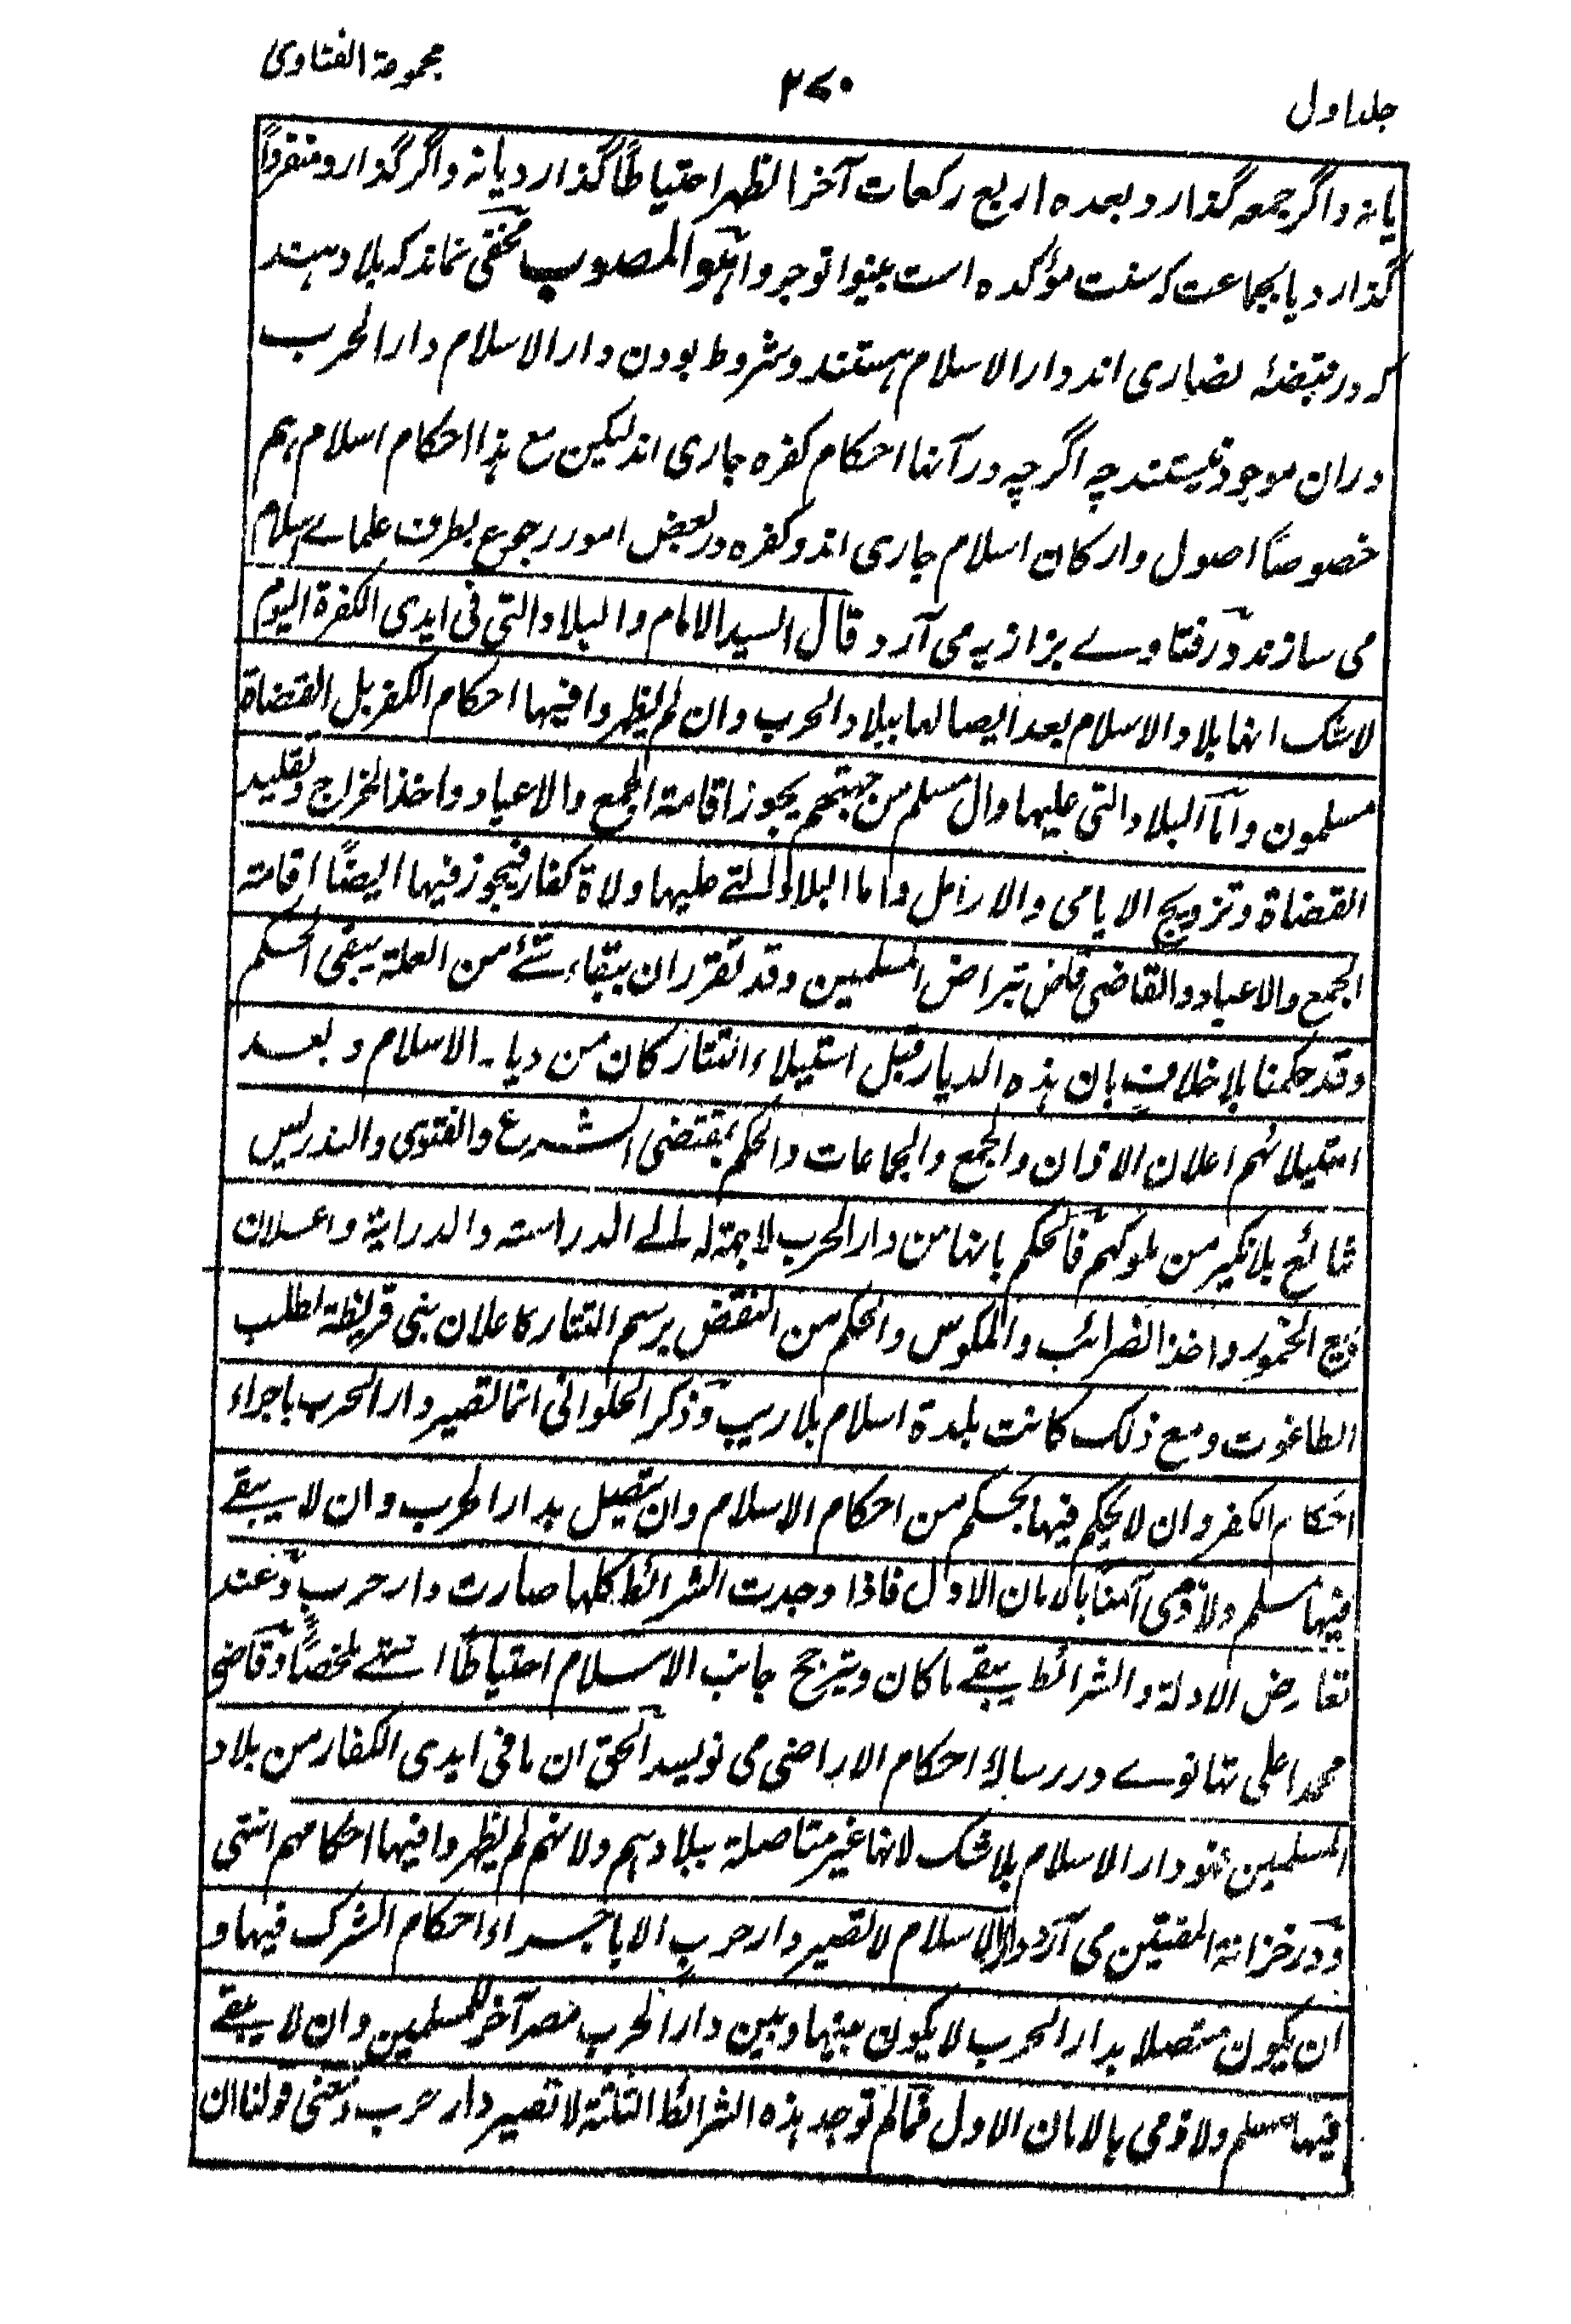 جلد اول
۲۷۰
مجموعة الفتاوى
یا نہ و اگر جمعہ گذارد و بعدہ اربع رکعات آخر الظہر احتیاطاً گذارد یا نہ و اگر گذارد منفرداً
گذارد یا بجماعت کہ سنت مؤکدہ است بینوا توجروا ہو المصوب مخفی نماند کہ بلاد ہند
کہ در قبضۂ نصاری اند دار الاسلام ہستند و شروط بودن دار الاسلام دار الحرب
دران موجود نیستند چہ اگرچہ در آنہا احکام کفرہ جاری اند لیکن مع ہذا احکام اسلام ہم
خصوصاً اصول و ارکان اسلام جاری اند و کفرہ در بعض امور رجوع بطرف علماے اسلام
می سازند و در فتاوے بزازیہ می آرد قال السید الامام والبلاد التی فی ایدی الکفرة الیوم
لاشک انہا بلاد الاسلام بعد ایصالہا ببلاد الحرب وان لم یظہروا فیہا احکام الکفر بل القضاة
مسلمون واما البلاد التی علیہا وال مسلم من جہتہم یجوز اقامة الجمع والاعیاد واخذ الخراج وتقلید
القضاة وتزویج الایامی والارامل واما البلاد التے علیہا ولاة کفار فیجوز فیہا ایضاً اقامة
الجمع والاعیاد والقاضی قاض بتراض المسلمین وقد تقرر ان ببقاء شئ من العلة یبقی الحکم
وقد حکمنا بلا خلاف بان ہذہ الدیار قبل استیلاء التتار کان من دیار الاسلام وبعد
استیلائہم اعلان الاذان والجمع والجماعات والحکم بمقتضی الشرع والفتوی والتدریس
شائع بلا نکیر من ملوکہم فالحکم بانہا من دار الحرب لا جہة لہ الے الدراسة والدرایة واعلان
بیع الخمور واخذ الضرائب والمکوس والحکم من النقض برسم التتار کاعلان بنی قریظة لطلب
الطاغوت ومع ذلک کانت بلدة اسلام بلا ریب وذکر الحلوانی انما تصیر دار الحرب باجراء
احکام الکفر وان لا یحکم فیہا بحکم من احکام الاسلام وان یتصل بدار الحرب وان لا یبقے
فیہا مسلم ولا ذمی آمناً بالامان الاول فاذا وجدت الشرائط کلہا صارت دار حرب وعند
تعارض الادلة والشرائط یبقے ما کان ویترجح جانب الاسلام احتیاطاً انتہے ملخصاً وقاضی
محمد اعلی تھانوے در رسالۂ احکام الاراضی می نویسد الحق ان ما فی ایدی الکفار من بلاد
المسلمین فہو دار الاسلام بلا شک لانہا غیر متاصلة ببلادہم ولانہم لم یظہروا فیہا احکامہم انتہی
و در خزانة المفتین می آرد دار الاسلام لا تصیر دار حرب الا باجراء احکام الشرک فیہا و
ان یکون متصلا بدار الحرب لا یکون بینہا وبین دار الحرب مصر آخر للمسلمین وان لا یبقے
فیہا مسلم ولا ذمی بالامان الاول فما لم توجد ہذہ الشرائط الثلثة لا تصیر دار حرب ومعنی قولنا ان